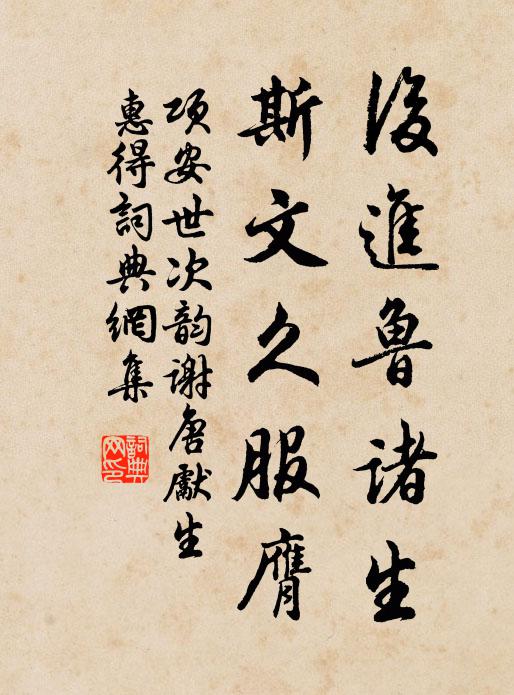 後進魯諸生
斯文久服膺
项安世次韵谢唐獻生
惠得詞典網集
詞典
网印